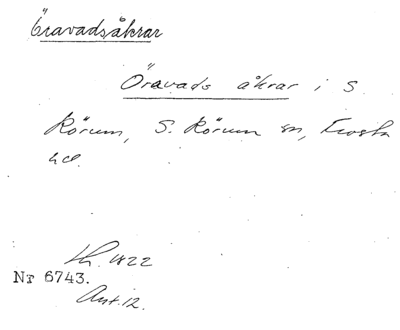 Öravadsåkrar
Öravads åkrar i S.
Rörum, S. Rörum sn, Frosta
hd.
Lh. 1822
Nr 6743.
Ant. 12.